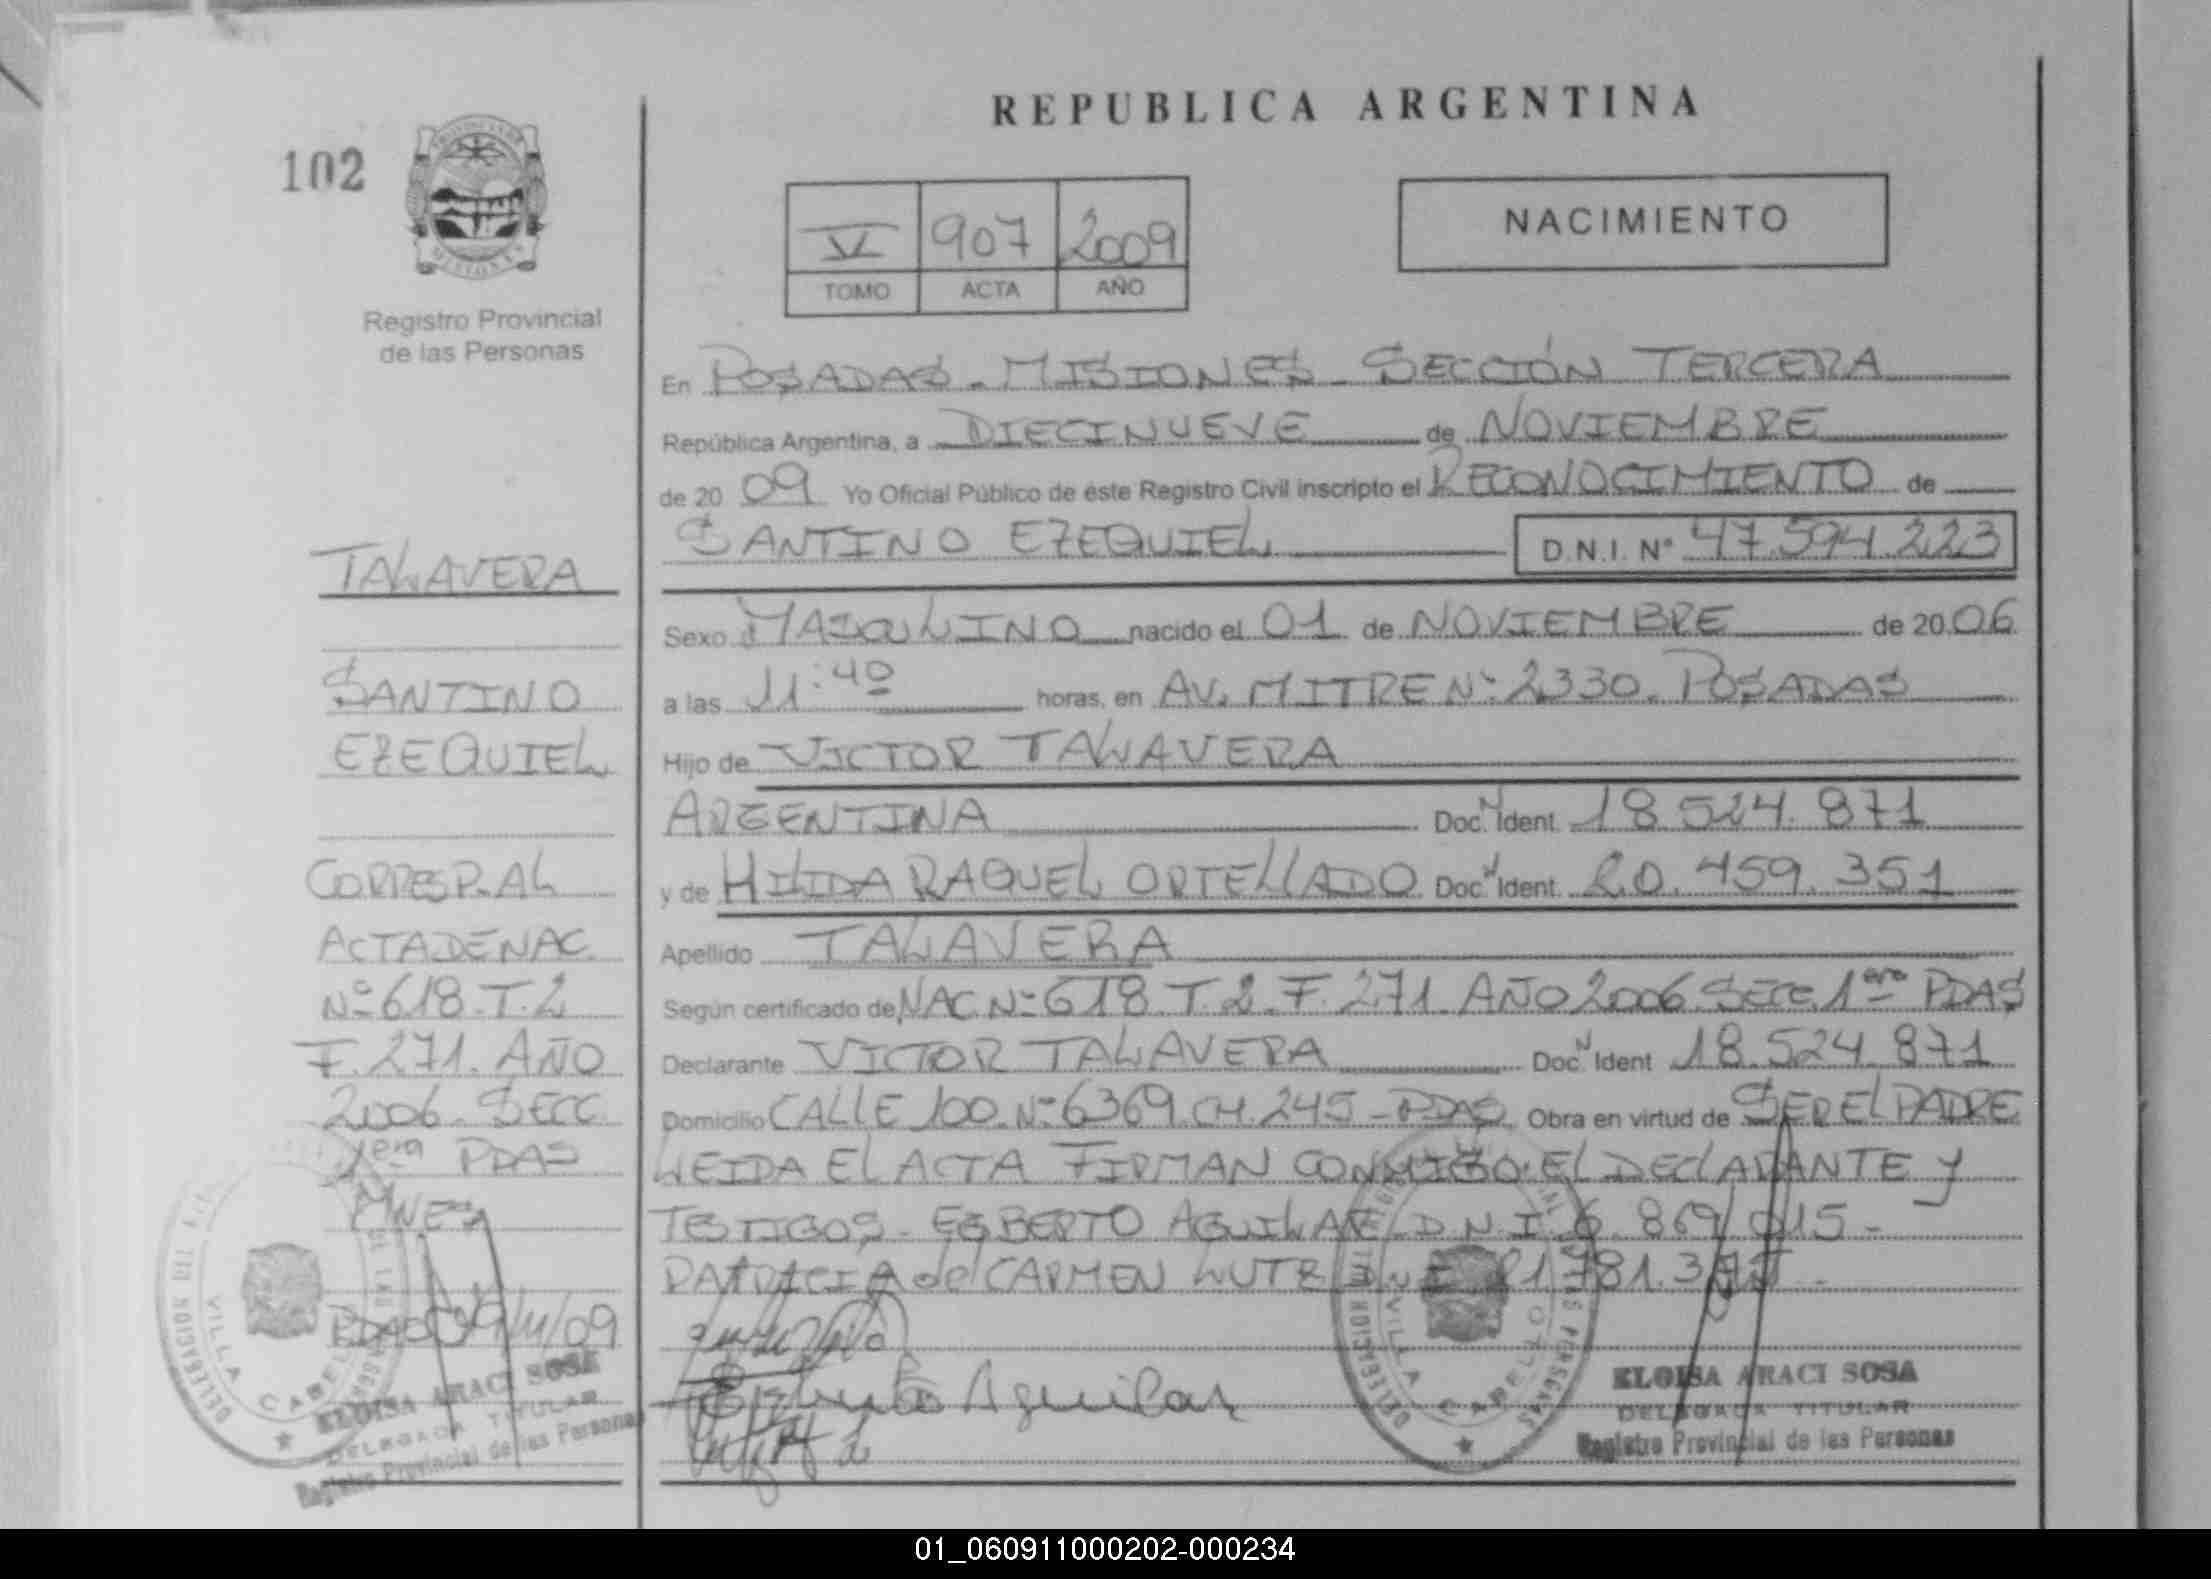 REPUBLICA ARGENTINA
102
V 907 2009
TOMO ACTA AÑO
NACIMIENTO
Registro Provincial
de las Personas
TALAVERA
SANTINO
EZEQUIEL
CORRESP. AL
ACTA DE NAC.
Nº 618. T. 2
F. 271. AÑO
2006. SECC.
1era PDAS
MNES
PDAS 19/11/09
ELOISA ARACI SOSA
DELEGADA TITULAR
Registro Provincial de las Personas
En POSADAS - MISIONES - SECCIÓN TERCERA
República Argentina, a DIECINUEVE de NOVIEMBRE
de 20 09 Yo Oficial Público de éste Registro Civil inscripto el RECONOCIMIENTO de
SANTINO EZEQUIEL D.N.I. Nº 47.594.223
Sexo MASCULINO nacido el 01 de NOVIEMBRE de 20 06
a las 11:40 horas, en AV. MITRE Nº 2330. POSADAS
Hijo de VICTOR TALAVERA
ARGENTINA Doc. N Ident. 18.524.871
y de HILDA RAQUEL ORTELLADO Doc. N Ident. 20.459.351
Apellido TALAVERA
Según certificado de NAC. Nº 618. T. 2. F. 271. AÑO 2006. SECC. 1era PDAS
Declarante VICTOR TALAVERA Doc. N Ident 18.524.871
Domicilio CALLE 100. Nº 6369. CH. 245 - PDAS Obra en virtud de SER EL PADRE
LEIDA EL ACTA FIRMAN CONMIGO EL DECLARANTE Y
TESTIGOS - EGBERTO AGUILAR D.N.I. 6.869.015 -
PATRICIA del CARMEN LUTZ D.N.I. 21.781.
Egberto Aguilar
DELEGACION VILLA CABELLO
ELOISA ARACI SOSA
DELEGADA TITULAR
Registro Provincial de las Personas
01_060911000202-000234